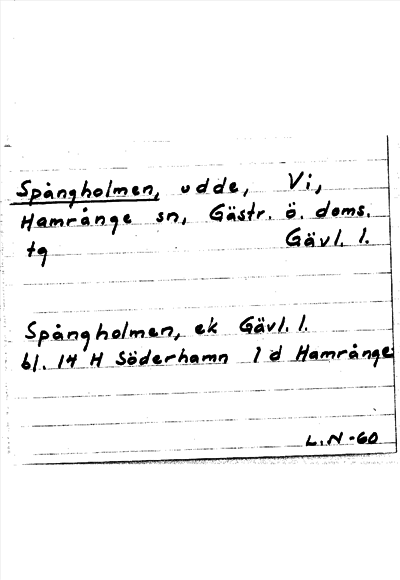 Spångholmen, udde, Vi,
Hamrånge sn, Gästr. ö. doms.
tg Gävl. l.
Spångholmen, ek Gävl. l.
bl. 14 H Söderhamn 1 d Hamrånge
L.N-60